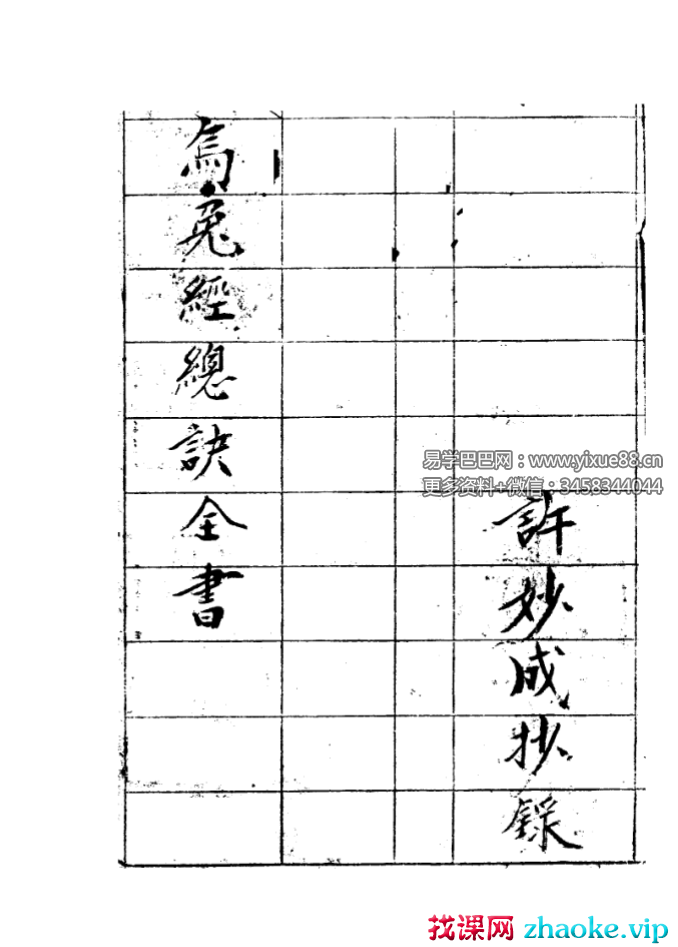 許妙成抄錄
烏兎經總訣全書
易学巴巴网：www.yixue88.cn
更多资料+微信：3458344044
找课网 zhaoke.vip